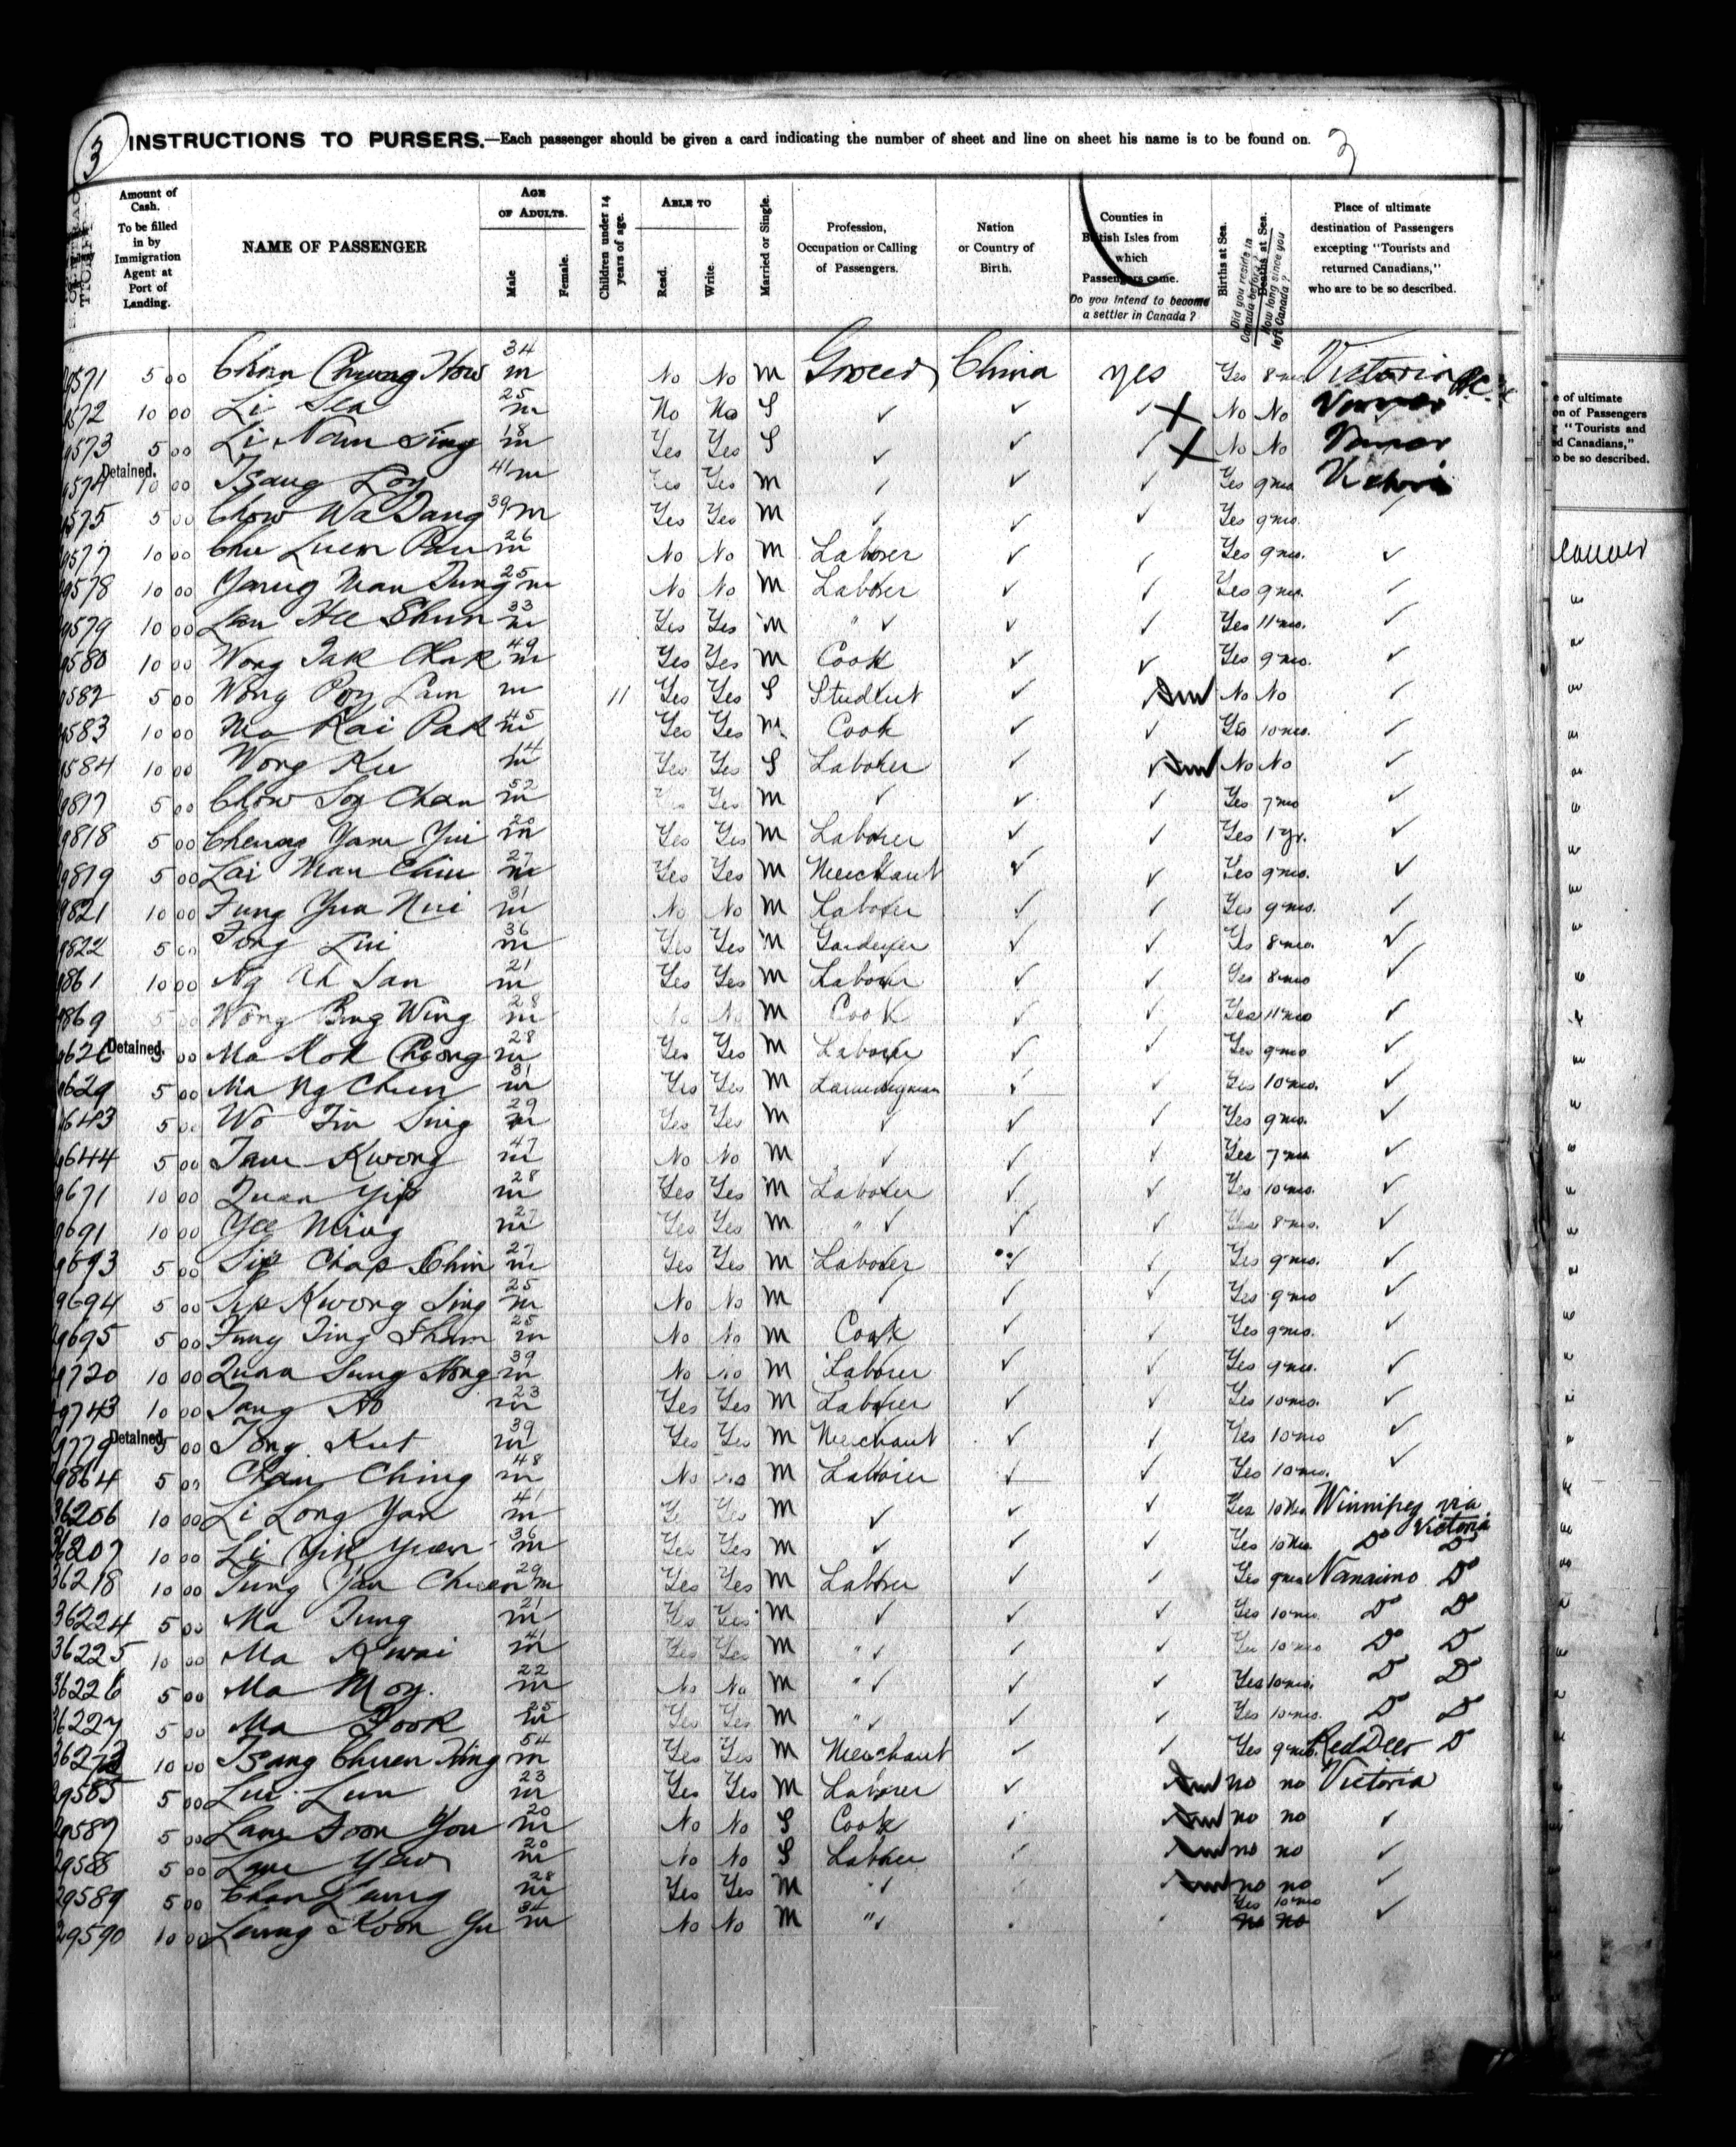 3
INSTRUCTIONS TO PURSERS.—Each passenger should be given a card indicating the number of sheet and line on sheet his name is to be found on. 3
Amount of Cash. To be filled in by Immigration Agent at Port of Landing.
NAME OF PASSENGER
AGE OF ADULTS.
Male
Female.
Children under 14 years of age.
ABLE TO
Read.
Write.
Married or Single.
Profession, Occupation or Calling of Passengers.
Nation or Country of Birth.
Counties in British Isles from which Passengers came.
Do you intend to become a settler in Canada?
Births at Sea.
Did you reside in Canada before?
Deaths at Sea.
How long since you left Canada?
Place of ultimate destination of Passengers excepting "Tourists and returned Canadians," who are to be so described.
9571 5 00 Chan Chung How 34 m No No M Grocer China yes Yes 8 mo Victoria B.C.
9572 10 00 Li Sea 25 m No No S ✓ ✓ ✓ X No No
9573 5 00 Li Nam Sing 18 m Yes Yes S ✓ ✓ ✓ X No No
Detained.
9574 10 00 Tsang Loy 41 m Yes Yes M ✓ ✓ ✓ Yes 9 mo Victoria
9575 5 00 Chow Wa Dang 39 m Yes Yes M ✓ ✓ ✓ Yes 9 mo. ✓
9577 10 00 Chu Luen Pau 26 m No No M Laborer ✓ ✓ Yes 9 mo. ✓
9578 10 00 Yang Man Tung 25 m No No M Laborer ✓ ✓ Yes 9 mo. ✓
9579 10 00 Lau Hee Shun 33 m Yes Yes M " ✓ ✓ ✓ Yes 11 mo. ✓
9580 10 00 Wong Tak Chak 49 m Yes Yes M Cook ✓ ✓ Yes 9 mo. ✓
9582 5 00 Wong Poy Lam m 11 Yes Yes S Student ✓ No No ✓
9583 10 00 Ma Kai Pak 45 m Yes Yes M Cook ✓ ✓ Yes 10 mo. ✓
9584 10 00 Wong Ku 14 m Yes Yes S Laborer ✓ ✓ No No ✓
9817 5 00 Chow Soy Chan 52 m Yes Yes M ✓ ✓ ✓ Yes 7 mo ✓
9818 5 00 Cheung Yam Yui 20 m Yes Yes M Laborer ✓ ✓ Yes 1 yr. ✓
9819 5 00 Lai Man Chiu 27 m Yes Yes M Merchant ✓ ✓ Yes 9 mo. ✓
9821 10 00 Fung Yua Nui 31 m No No M Laborer ✓ ✓ Yes 9 mo. ✓
9822 5 00 Fong Lui 36 m Yes Yes M Gardener ✓ ✓ Yes 8 mo. ✓
9861 10 00 Ng Ah San 21 m Yes Yes M Laborer ✓ ✓ Yes 8 mo ✓
9869 5 00 Wong Bing Wing 28 m No No M Cook ✓ ✓ Yes 11 mo ✓
Detained.
9626 5 00 Ma Kok Cheong 28 m Yes Yes M Laborer ✓ ✓ Yes 9 mo ✓
9629 5 00 Ma Ng Chun 31 m Yes Yes M Laundryman ✓ ✓ Yes 10 mo. ✓
9643 5 00 Wo Tin Sing 29 m Yes Yes M ✓ ✓ ✓ Yes 9 mo. ✓
9644 5 00 Tam Kwong 47 m No No M ✓ ✓ ✓ Yes 7 mo ✓
9671 10 00 Quan Yip 28 m Yes Yes M Laborer ✓ ✓ Yes 10 mo. ✓
9691 10 00 Yee Ming 27 m Yes Yes M " ✓ ✓ ✓ Yes 8 mo. ✓
9693 5 00 Sip Chap Chin 27 m Yes Yes M Laborer ✓ ✓ Yes 9 mo. ✓
9694 5 00 Sip Kwong Sing 25 m No No M ✓ ✓ ✓ Yes 9 mo ✓
9695 5 00 Fung Ting Sham 25 m No No M Cook ✓ ✓ Yes 9 mo. ✓
9720 10 00 Quan Sung Hong 39 m No No M Laborer ✓ ✓ Yes 9 mo. ✓
9743 10 00 Tang Ao 23 m Yes Yes M Laborer ✓ ✓ Yes 10 mo. ✓
Detained.
9779 5 00 Tong Kut 39 m Yes Yes M Merchant ✓ ✓ Yes 10 mo ✓
9864 5 00 Chan Ching 48 m No No M Laborer ✓ ✓ Yes 10 mo. ✓
36206 10 00 Li Long Yan 41 m Yes Yes M ✓ ✓ ✓ Yes 10 mo Winnipeg via Victoria
36207 10 00 Li Yik Yuen 36 m Yes Yes M ✓ ✓ ✓ Yes 10 mo Do Do
36218 10 00 Tung Yau Chuen 29 m Yes Yes M Laborer ✓ ✓ Yes 9 mo Nanaimo Do
36224 5 00 Ma Tung 21 m Yes Yes M ✓ ✓ ✓ Yes 10 mo. Do Do
36225 10 00 Ma Kwai 41 m Yes Yes M " ✓ ✓ ✓ Yes 10 mo Do Do
36226 5 00 Ma Moy. 22 m No No M " ✓ ✓ ✓ Yes 10 mo. Do Do
36227 5 00 Ma Fook 25 m Yes Yes M " ✓ ✓ ✓ Yes 10 mo. Do Do
10 00 Tsang Chuen Hing 54 m Yes Yes M Merchant ✓ ✓ Yes 9 mo. Red Deer Do
29585 5 00 Lui Lun 23 m Yes Yes M Laborer ✓ no no Victoria
29587 5 00 Lam Foon You 20 m No No S Cook no no ✓
29588 5 00 Lam Yew 20 m No No S Laborer no no ✓
29589 5 00 Chan Leung 28 m Yes Yes M " ✓ no no ✓
29590 10 00 Leung Koon Yu 34 m No No M " ✓ Yes 10 mo no no ✓
e of ultimate
on of Passengers
"Tourists and
ed Canadians,"
o be so described.
couver